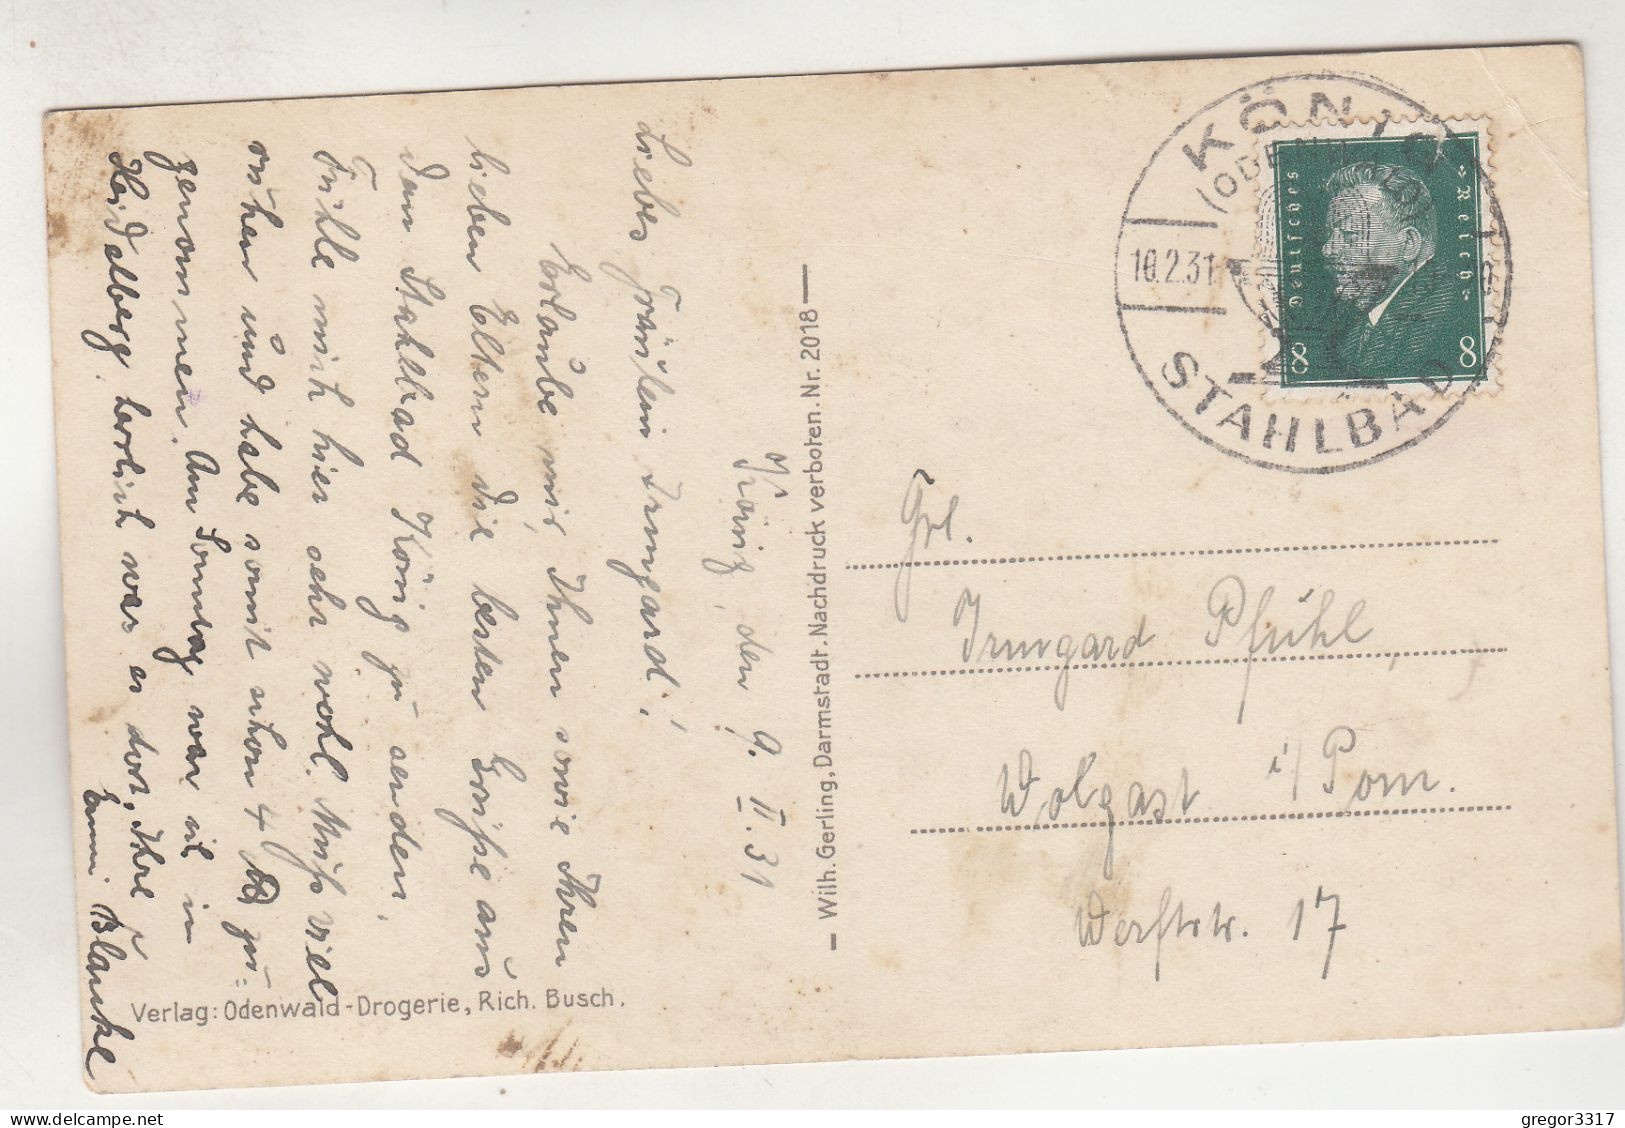 König, den 9. II. 31
Liebes Fräulein Irmgard!
Erlaube mir, Ihnen sowie Ihren
lieben Eltern die besten Grüße aus
dem Stahlbad König zu senden.
Fühle mich hier sehr wohl. Muß viel
ruhen und habe somit schon 4 ℔ zu-
genommen. Am Sonntag war ich in
Heidelberg, herrlich war es dort. Ihre
Emmi Blankl
Verlag: Odenwald-Drogerie, Rich. Busch.
— Wilh. Gerling, Darmstadt. Nachdruck verboten. Nr. 2018 —
KÖNIG
(ODENWALD)
10.2.31
STAHLBAD
Deutsches Reich
8 8
Frl.
Irmgard Pfühl,
Wolgast i/Pom.
Werftstr. 17
gregor3317